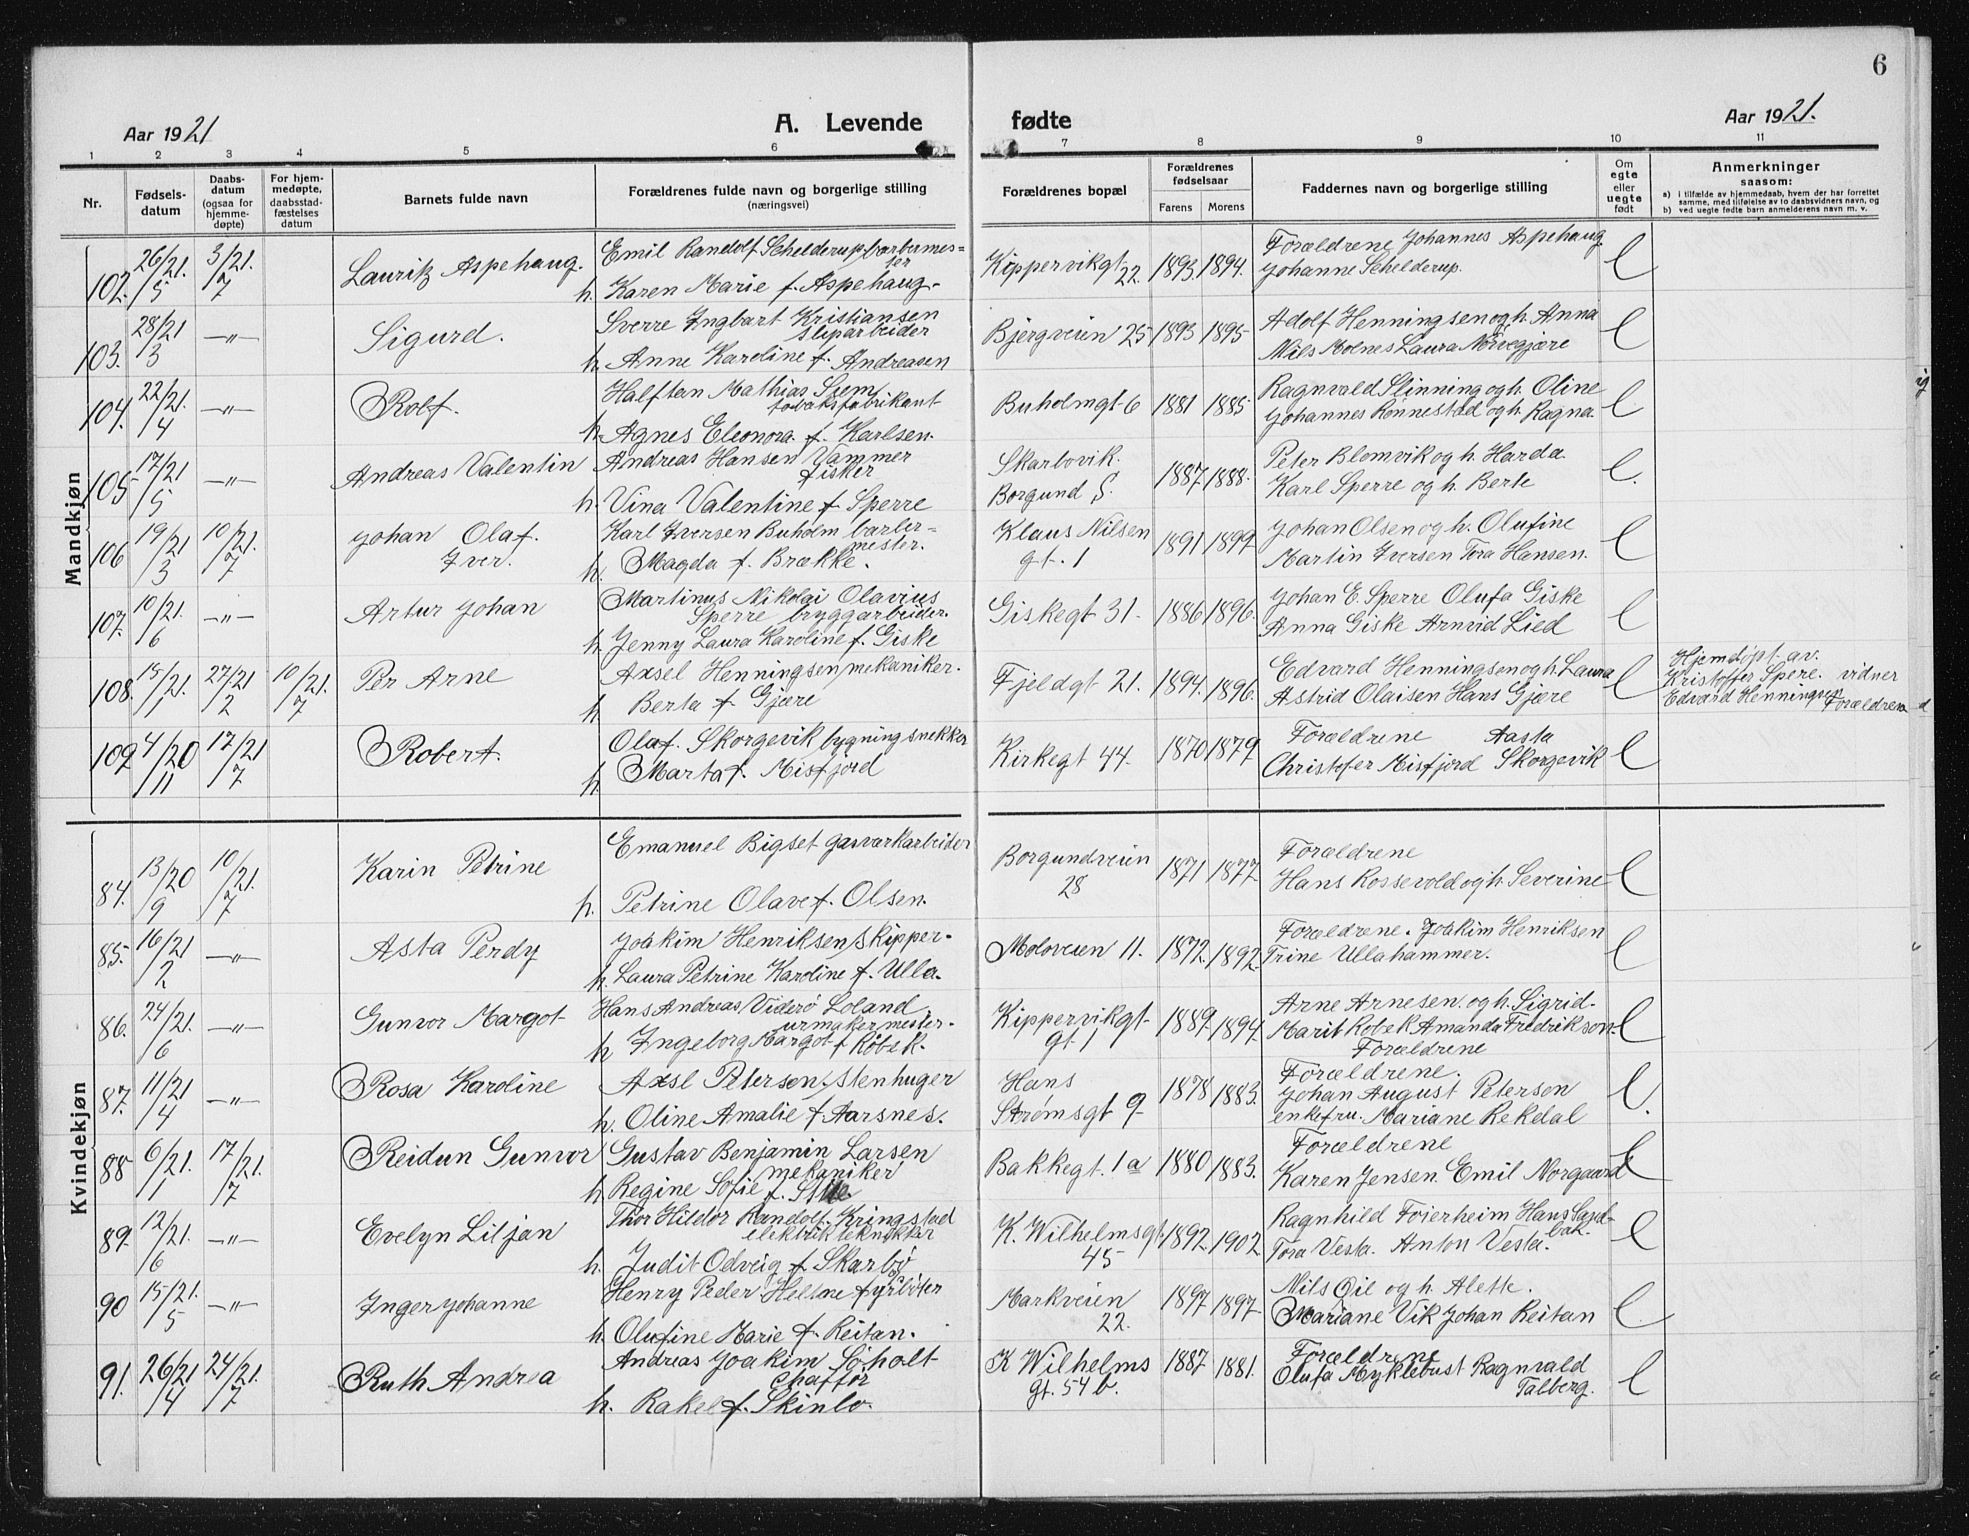 6
Aar 1921
A. Levende fødte
Aar 1921.
1 2 3 4 5 6 7 8 9 10 11
Nr.
Fødsels-
datum
Daabs-
datum
(ogsaa for
hjemme-
døpte)
For hjem-
medøpte,
daabsstad-
fæstelses
datum
Barnets fulde navn
Forældrenes fulde navn og borgerlige stilling
(næringsvei)
Forældrenes bopæl
Forældrenes
fødselsaar
Farens Morens
Faddernes navn og borgerlige stilling
Om
egte
eller
uegte
født
Anmerkninger
saasom:
a) i tilfælde av hjemmedaab, hvem der har forrettet
samme, med tilføielse av to daabsvidners navn, og
b) ved uegte fødte barn anmelderens navn m. v.
Mandkjøn
102. 26/5 21. 3/7 21. Lauritz Aspehaug.
Emil Randolf Schelderup barbermes-
ter
h. Karen Marie f. Aspehaug.
Kippervikgt 22. 1893. 1894.
Forældrene Johannes Aspehaug
Johanne Schelderup.
E
103. 28/3 21 —"— Sigurd.
Sverre Ingbart Kristiansen
sliparbeider
h. Anne Karoline f. Andreasen
Bjergveien 25 1893 1895
Adolf Henningsen og h. Anna
Nils Molnes Laura Norvegjære
E
104. 22/4 21. —"— Rolf.
Halften Mathias Siem
tobaksfabrikant
h. Agnes Eleonora f. Karlsen.
Buholmgt 6 1881 1885
Ragnvald Slinning og h. Oline
Johannes Rønnestad og h. Ragna.
E
105 17/5 21 —"— Andreas Valentin
Andreas Hansen Vammer
fisker
h. Vina Valentine f. Sperre
Skarbovik.
Borgund S. 1887. 1888.
Peter Blomvik og h. Harda.
Karl Sperre og h. Berte
E.
106 19/3 21 10/7 21. Johan Olaf.
Iver.
Karl Iversen Buholm barber-
mester.
h. Magda f. Brække.
Klaus Nilsen
gt. 1 1891 1899
Johan Olsen og h. Olufine
Martin Iversen Tora Hansen.
E
107. 10/6 21. —"— Artur Johan
Martinus Nikolai Olavius
Sperre bryggarbeider.
h. Jenny Laura Karoline f. Giske
Giskegt 31. 1886 1896.
Johan E. Sperre Olufa Giske
Anna Giske Arnvid Lied
E
108. 15/1 21. 27/2 21 10/7 21. Per Arne
Axsel Henningsen mekaniker.
h Berta f Gjære
Fjeldgt 21. 1894. 1896.
Edvard Henningsen og h. Laura
Astrid Olaisen Hans Gjære
E
Hjemdøpt av.
Kristoffer Spere. vidner
Edvard Henningsen
Forældrene
109 4/11 20 17/7 21 Robert.
Olaf. Skorgevik bygningsnekker
h Marta f. Misfjord
Kirkegt 44. 1870 1879
Forældrene Aasta
Christofer Misfjord Skorgevik
E
Kvindekjøn
84. 13/9 20 10/7 21. Karin Petrine
Emanuel Bigset gasværkarbeider
h. Petrine Olave f. Olsen.
Borgundveien
28 1871 1877.
Forældrene
Hans Rossevold og h. Severine
E
85. 16/2 21 —"— Asta Perdy
Joakim Henriksen, skipper.
h. Laura Petrine Karoline f. Ulla.
Moloveien 11. 1872. 1892.
Forældrene. Joakim Henriksen
Trine Ullahammer.
E
86. 24/6 21. —"— Gunvor Margot
Hans Andreas Viderø Loland
urmakermester.
h Ingeborg Margot f Røbek.
Kippervikgt
gt. 1 1889. 1894.
Arne Arnesen og h. Sigrid.
Marit Robek Amanda Fredrikson
Forældrene
E
87. 11/4 21 —"— Rosa Karoline
Axsl Peterson, stenhuger
h. Oline Amalie f Aarsnes.
Hans
Strømsgt 9 1878 1883.
Forældrene.
Johan August Peterson
enkefru. Mariane Rekdal
E.
88 6/1 21. 17/7 21. Reidun Gunvor
Gustav Benjamin Larsen
mekaniker
h. Regine Sofie f.
Bakkegt. 1a 1880 1883.
Forældrene
Karen Jensen. Emil Norgaard
E
89. 12/6 21. —"— Evelyn Liljan
Thor Hildor Randolf Kringstad
elektriktekniker
h. Judit Odveig f Skarbø
K. Wilhelmsgt
45 1892. 1902
Ragnhild Foierheim Hans Sand-
bak.
Tora Vesta. Anton Vesta.
E
90 15/5 21. —"— Inger Johanne
Henry Peder Hellne fyrbøter
h. Olufine Marie f. Reitan.
Markveien
22. 1897 1897.
Nils Oie og h. Alette.
Mariane Vik Johan Reitan
E
91. 26/4 21 24/7 21. Ruth Andrea
Andreas Joakim Søholt
Chaffør
h. Rakel f. Skinlo.
K Wilhelms
gt. 54 b. 1887 1881.
Forældrene
Olufa Myklebust Ragnvald
Talberg.
E